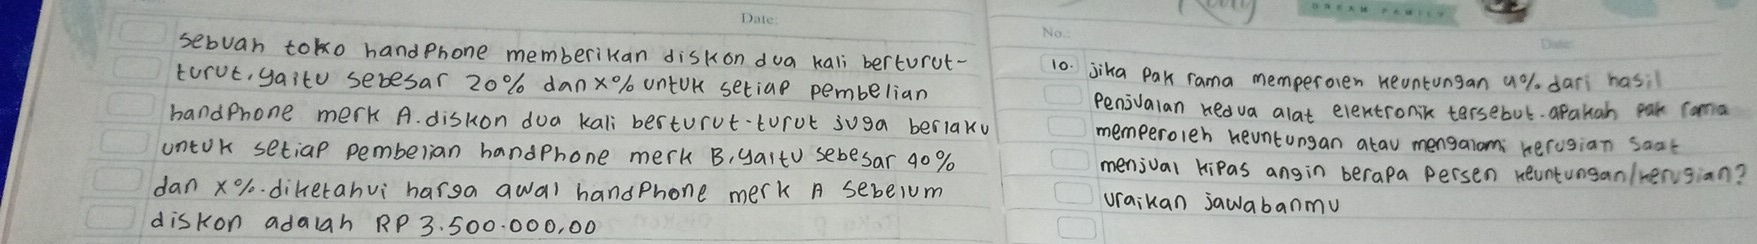 Date:
sebuah toko handphone memberikan diskon dua kali berturut-
turut, yaitu sebesar 20% dan x% untuk setiap pembelian
handphone merk A. diskon dua kali berturut-turut juga berlaku
untuk setiap pembelian handphone merk B, yaitu sebesar 40%
dan x%. diketahui harga awal handphone merk A sebelum
diskon adalah RP 3.500.000,00
DREAM FAMILY
No.:
Date:
10. jika pak rama memperoleh keuntungan 4% dari hasil
Penjualan kedua alat elektronik tersebut. apakah pak rama
memperoleh keuntungan atau mengalami kerugian saat
menjual kipas angin berapa persen keuntungan/kerugian?
uraikan jawabanmu